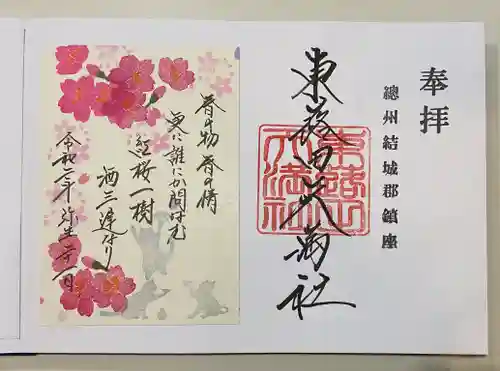 奉拝
總州結城郡鎮座
東蕗田天満社
春の物春の情
更に誰にか問はむ
紅桜一樹
酒三遅なり
令和七年弥生二十一日